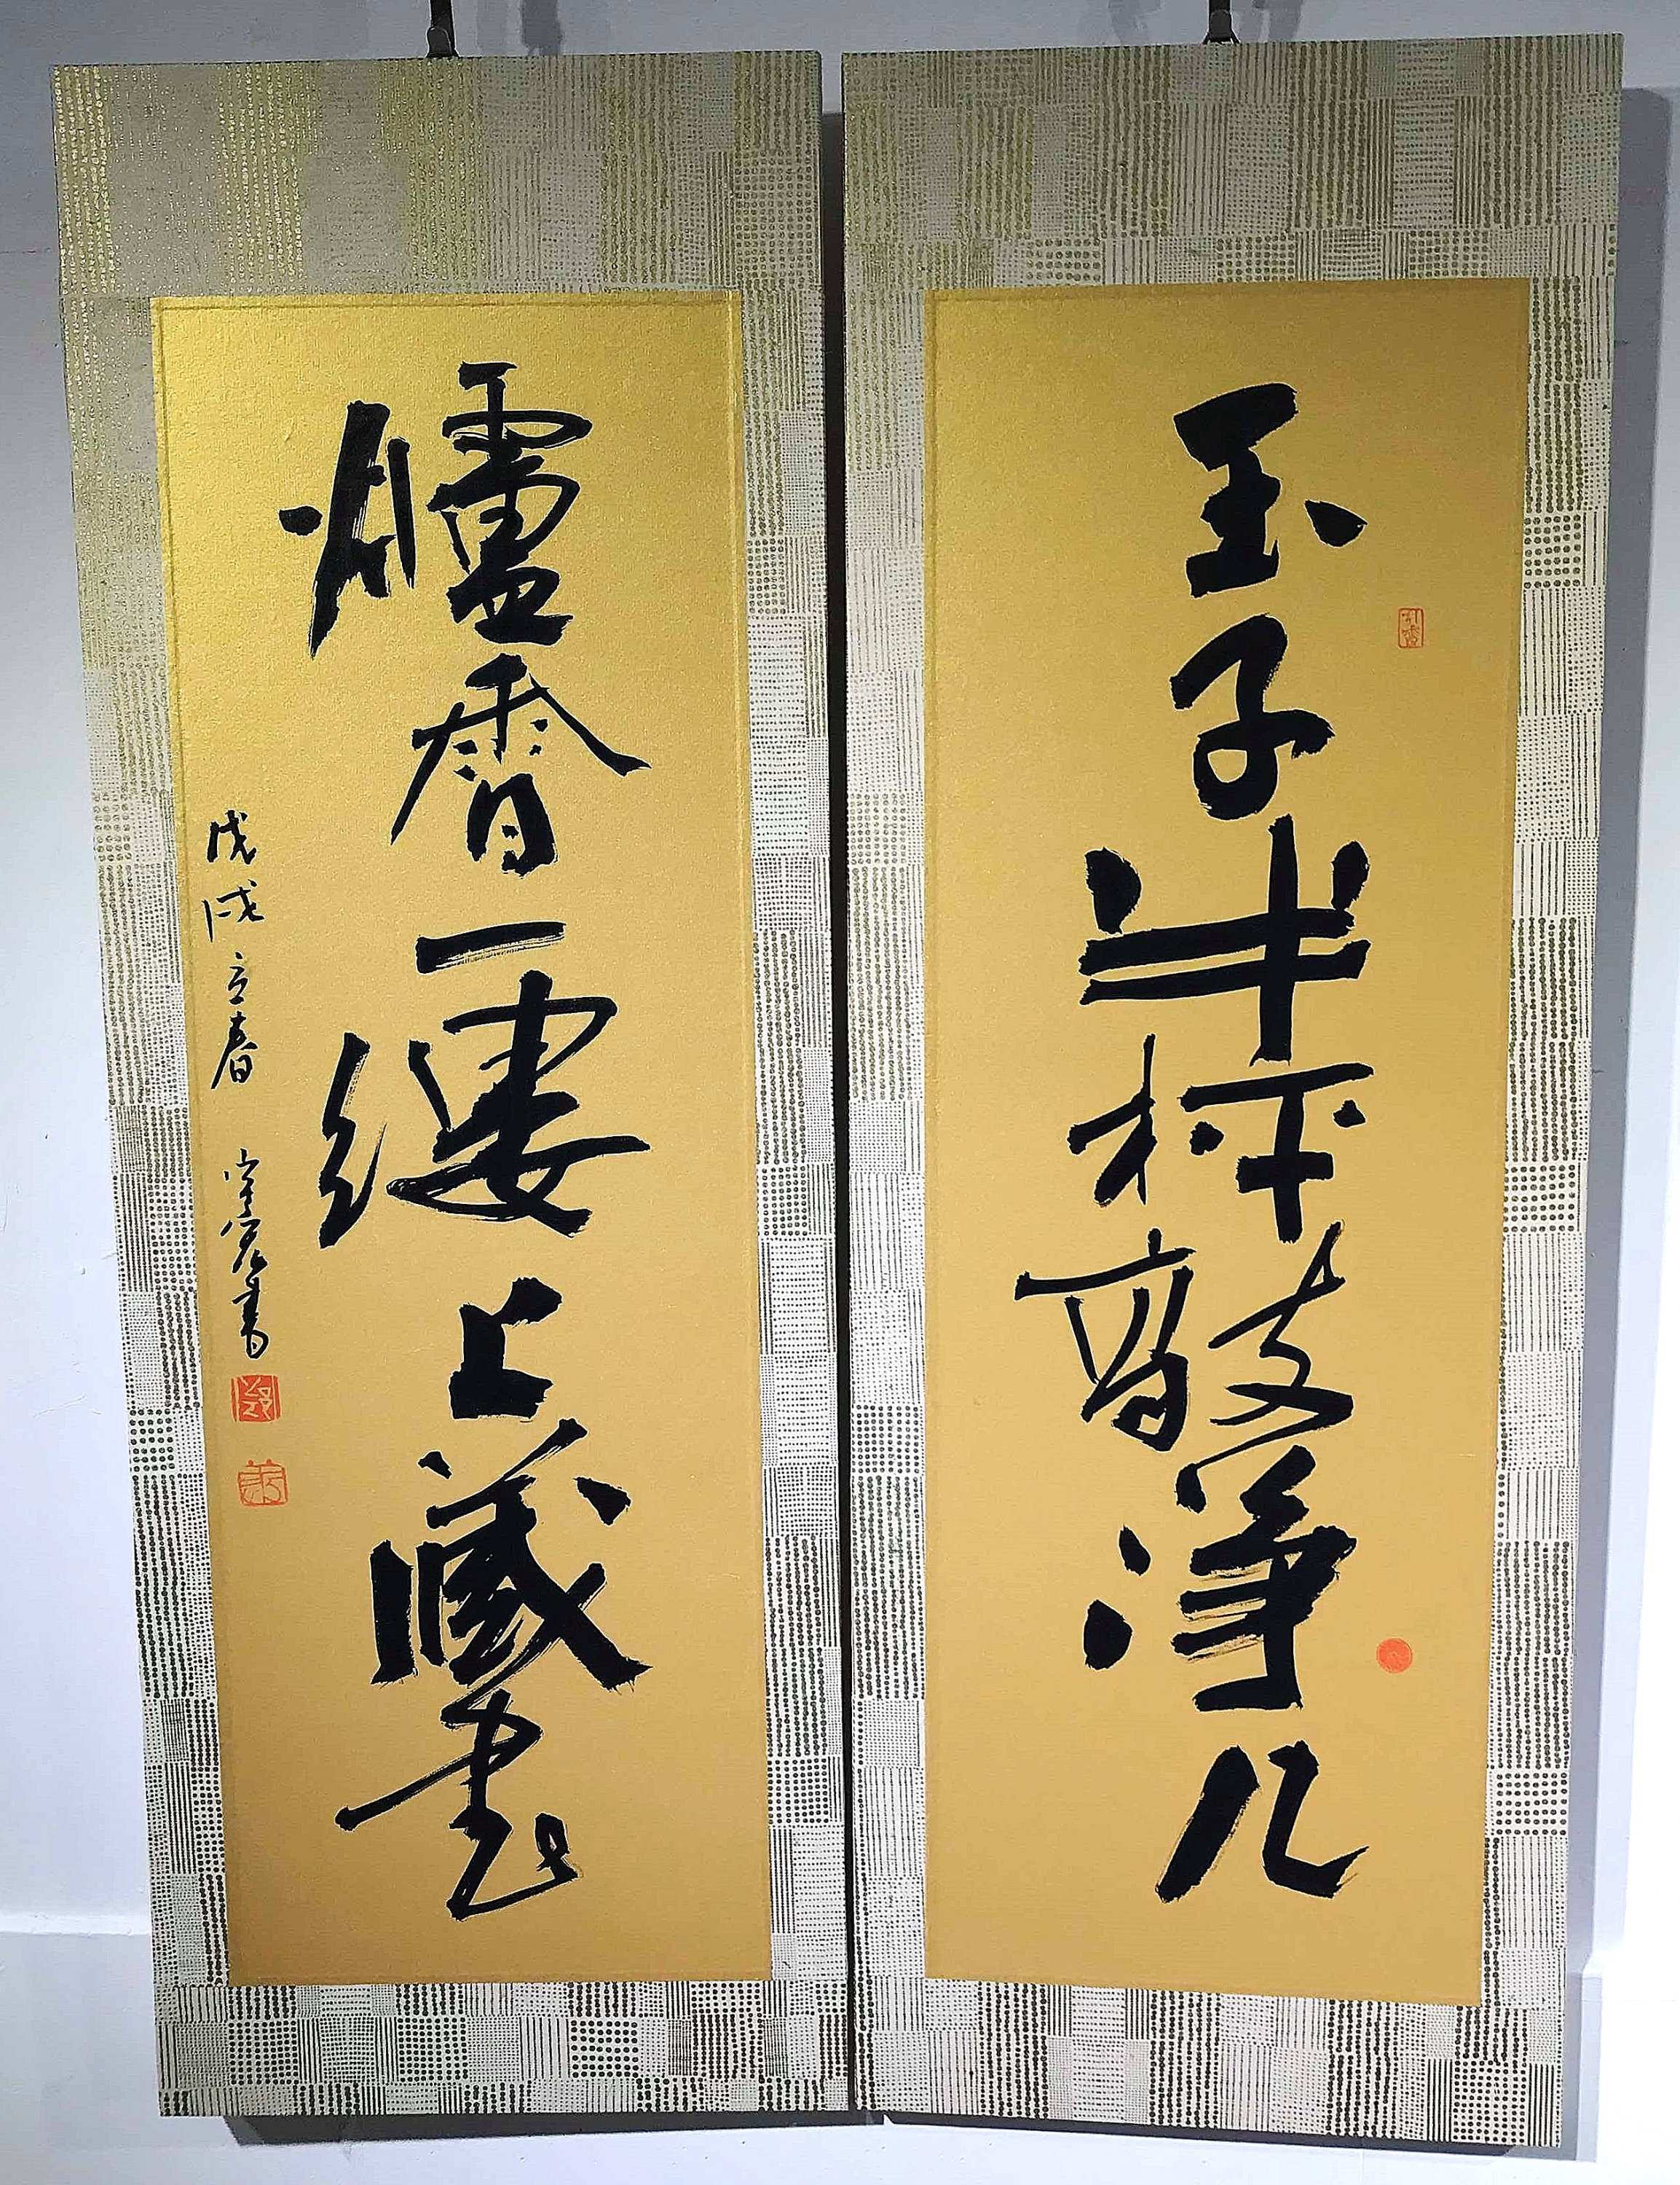 玉子半枰敲淨几
爐香一縷上藏書
戊戌立春
書